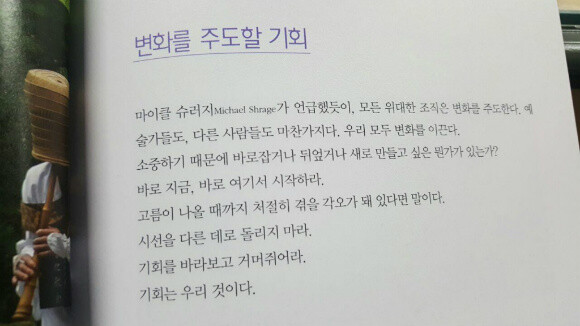 변화를 주도할 기회
마이클 슈러지Michael Shrage가 언급했듯이, 모든 위대한 조직은 변화를 주도한다. 예
술가들도, 다른 사람들도 마찬가지다. 우리 모두 변화를 이끈다.
소중하기 때문에 바로잡거나 뒤엎거나 새로 만들고 싶은 뭔가가 있는가?
바로 지금, 바로 여기서 시작하라.
고름이 나올 때까지 처절히 겪을 각오가 돼 있다면 말이다.
시선을 다른 데로 돌리지 마라.
기회를 바라보고 거머쥐어라.
기회는 우리 것이다.